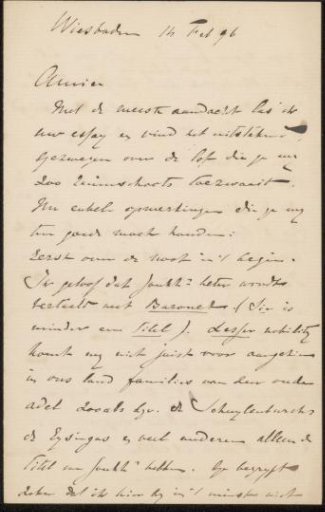 Wiesbaden 14 Feb 96
Amice
Met de meeste aandacht las ik
uw essay en vind het uitstekend
gezwegen over de lof die je mij
zoo ruimschoots toezwaait.
Nu enkele opmerkingen die je mij
ten goede moet houden:
Eerst over de noot in 't begin.
Ik geloof dat Jonkhr beter wordt
vertaald met Baronet (Sir is
minder een titel). Lesser nobility
komt mij niet juist voor aangezien
in ons land families van den ouden
adel zooals bijv. de Schuylenburchs
de Eysingas en veel anderen alleen de
titel van Jonkhr hebben. Je begrijpt
zeker dat ik hier bij in 't minste niet